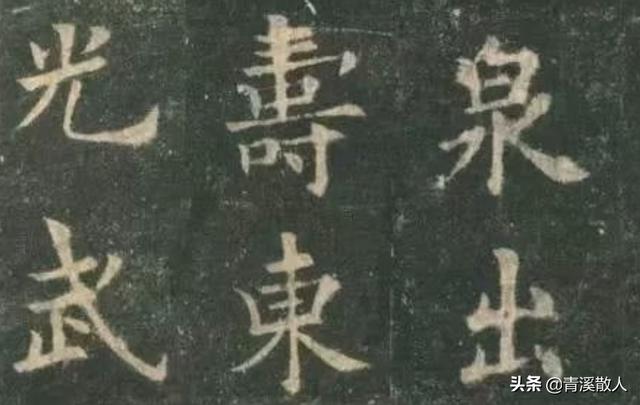 泉出
壽東
光武
头条 @青溪散人